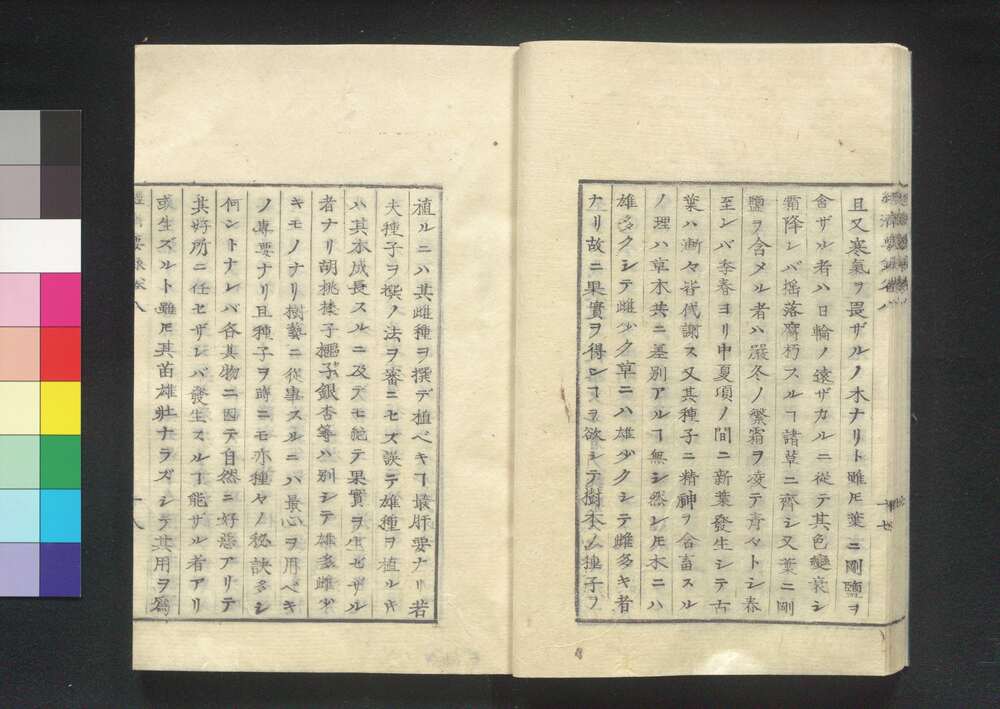 且又寒氣ヲ畏ザルノ木ナリト雖𪜈葉ニ剛鹽ヲ
含ザル者ハ日輪ノ遠ザカルニ從テ其色變衰シ
霜降レバ揺落腐朽スルヿ諸草ニ齊シ又葉ニ剛
鹽ヲ含メル者ハ嚴冬ノ繁霜ヲ凌テ青々トシ春
至レバ季春ヨリ中夏頃ノ間ニ新葉發生シテ古
葉ハ漸々皆代謝ス又其種子ニ精神ヲ含畜スル
ノ理ハ草木共ニ差別アルヿ無シ然レ𪜈木ニハ
雄多クシテ雌少ク草ニハ雄少クシテ雌多キ者
ナリ故ニ果實ヲ得ンヿヲ欲シテ樹木ノ種子ヲ
十七
植ルニハ其雌種ヲ撰デ植ベキヿ最肝要ナリ若
夫種子ヲ撰ノ法ヲ審ニセズ誤テ雄種ヲ植ルキ
ハ其木成長スルニ及デモ絶テ果實ヲ生ゼザル
者ナリ胡桃榛子榧子銀杏等ハ別シテ雄多雌少
キモノナリ樹藝ニ從事スルニハ最心ヲ用ベキ
ノ專要ナリ且種子ヲ蒔ニモ亦種々ノ秘訣多シ
何ントナレバ各其物ニ因テ自然ニ好惡アリテ
其好所ニ任セザレバ發生スルヿ能ザル者アリ
或生ズルト雖𪜈其苗雄壯ナラズシテ其用ヲ爲
十八